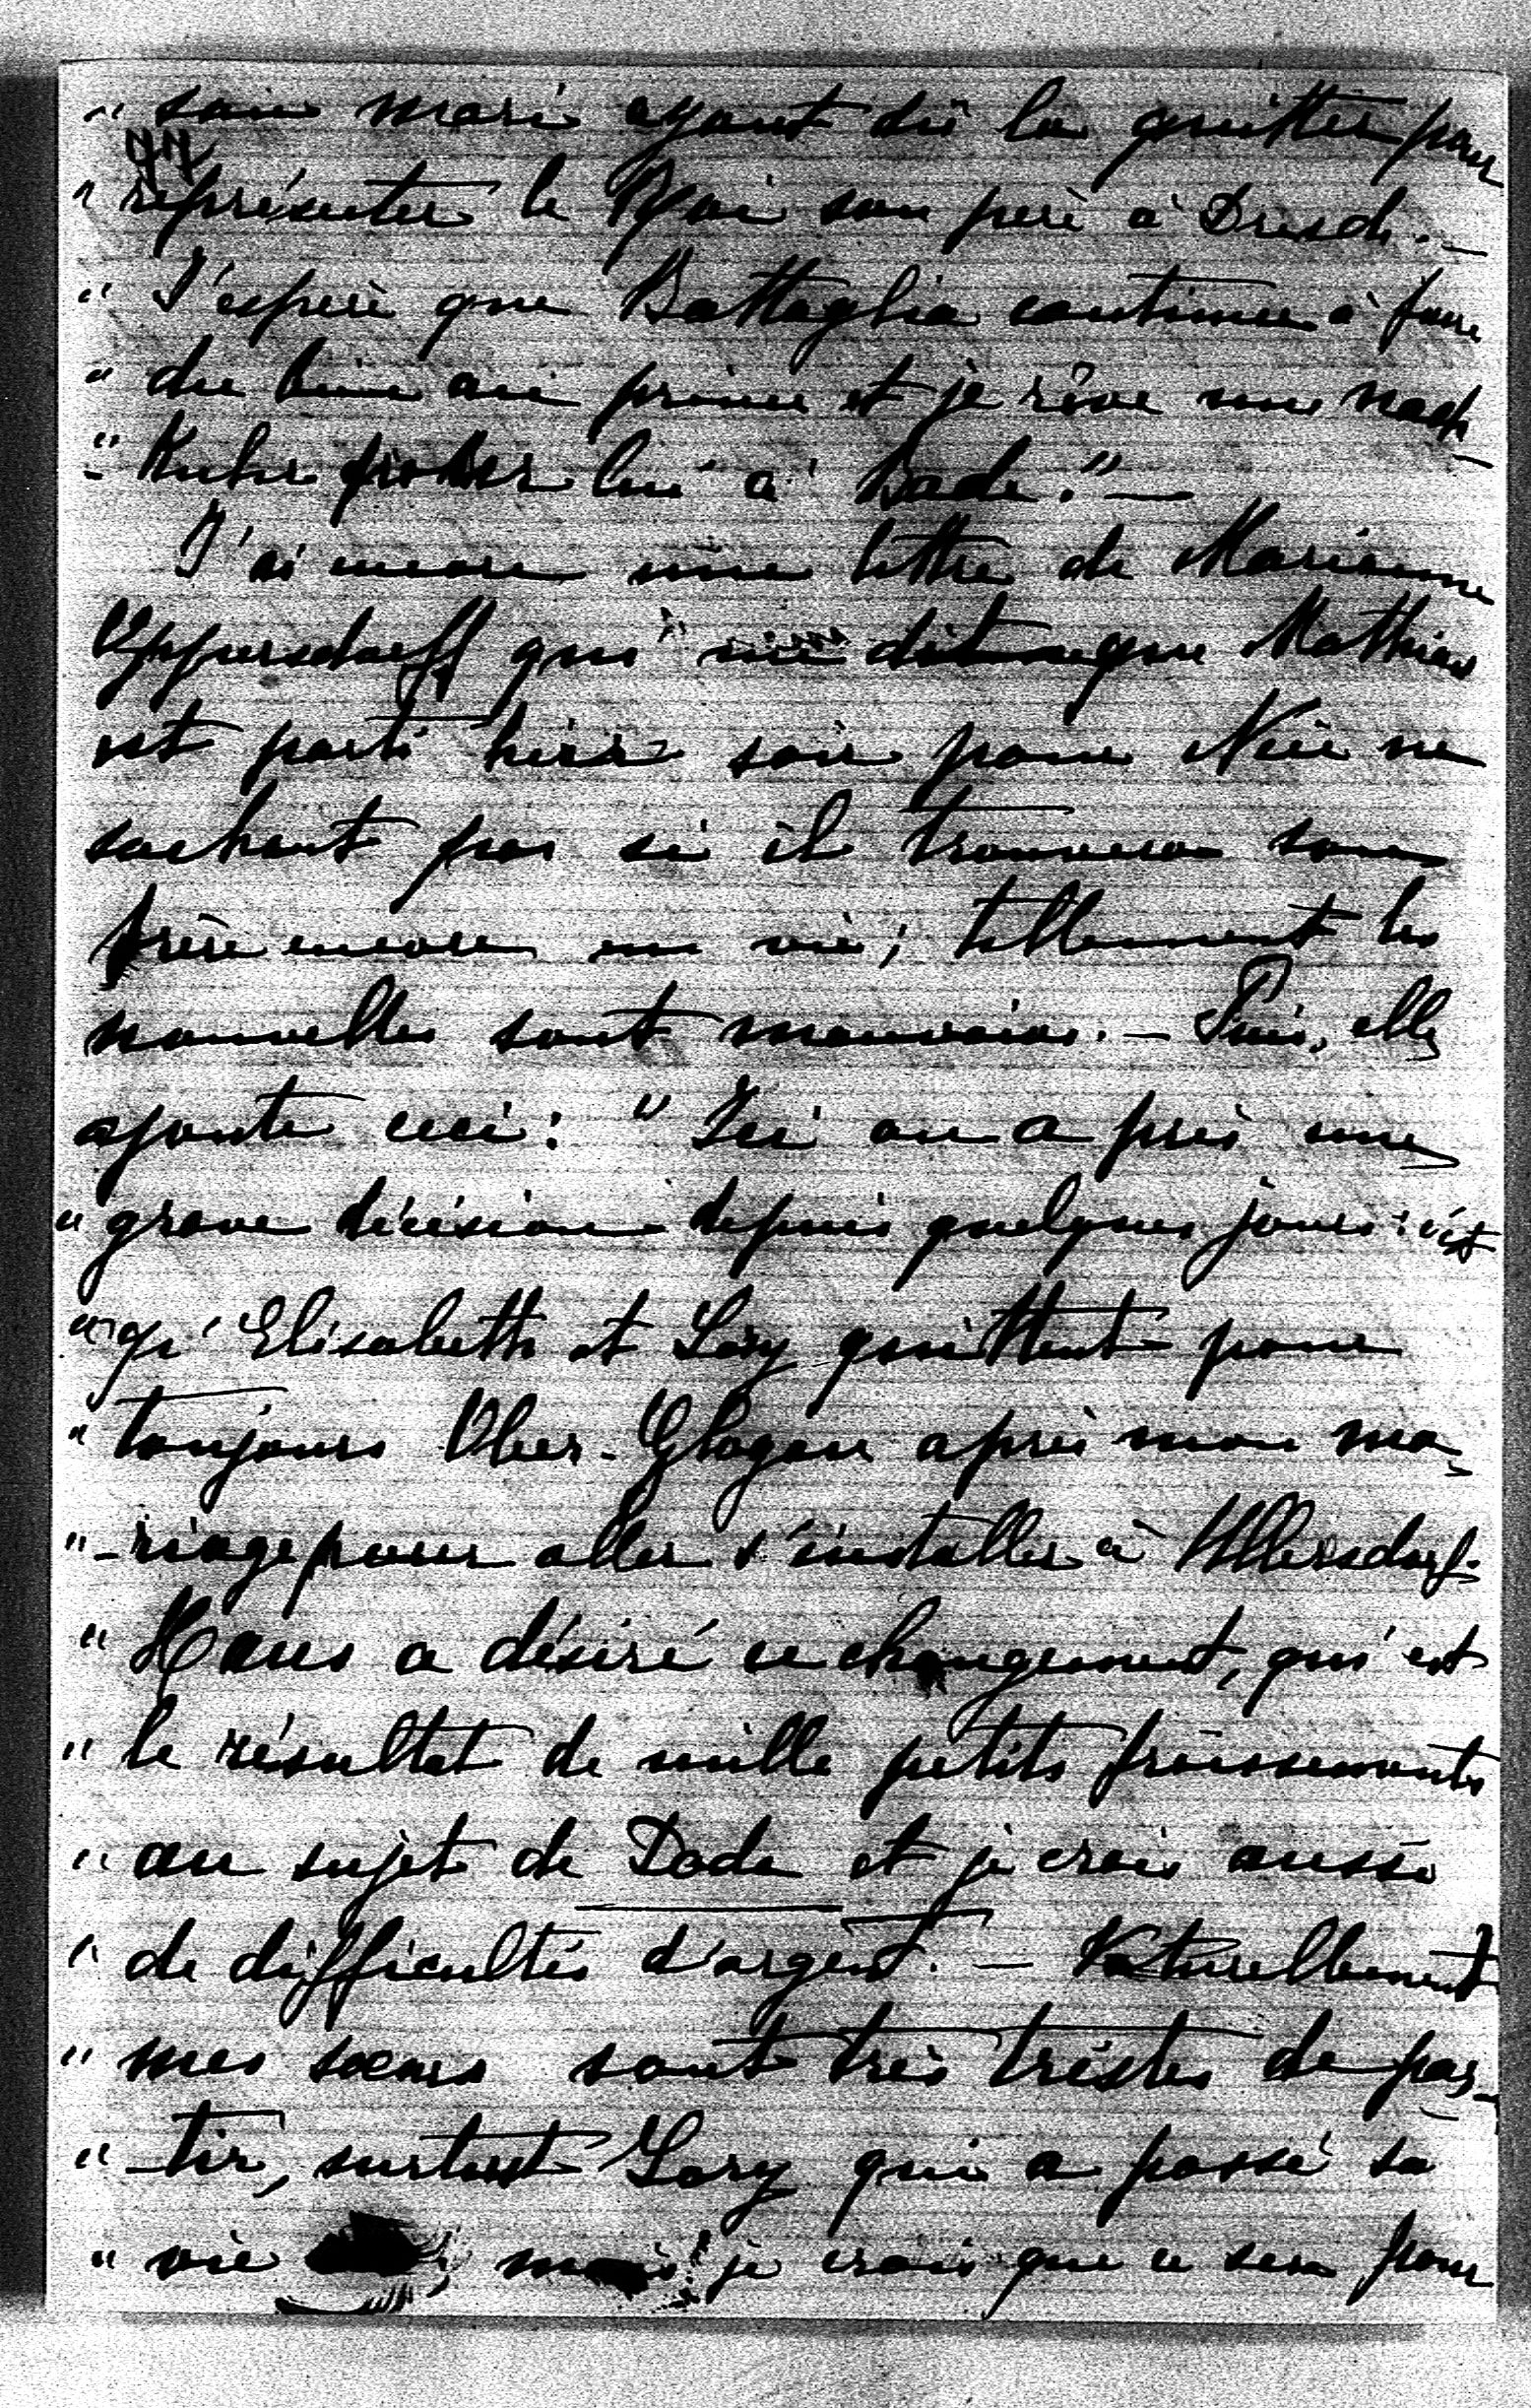 " son mari ayant dû la quitter pour
" représenter le Roi son père à Dresde. —
" J'espère que Battaglia continue à faire
" du bien au prince et je rêve une Nach-
" -Kuhr pour lui à Bade." —
J'ai encore une lettre de Marianne
Oppersdorff qui me dit que Mathieu
est parti hier soir pour Nice ne
sachant pas si il trouvera son
frère encore en vie; tellement les
nouvelles sont mauvaises. — Puis, elle
ajoute ceci: " Ici on a pris une
" grave décision depuis quelques jours: c'est
" qu'Elisabeth et Lory quittent pour
" toujours Ober-Glogau après mon ma-
" -riage pour aller s'installer à Ullersdorf.
" Hans a désiré ce changement, qui est
" le résultat de mille petits froissements
" au sujet de Dode et je crois aussi
" de difficultés d'argent. — Naturellement
" mes sœurs sont très tristes de par-
" -tir, surtout Lory qui a passé sa
" vie mais je crois que ce sera pour